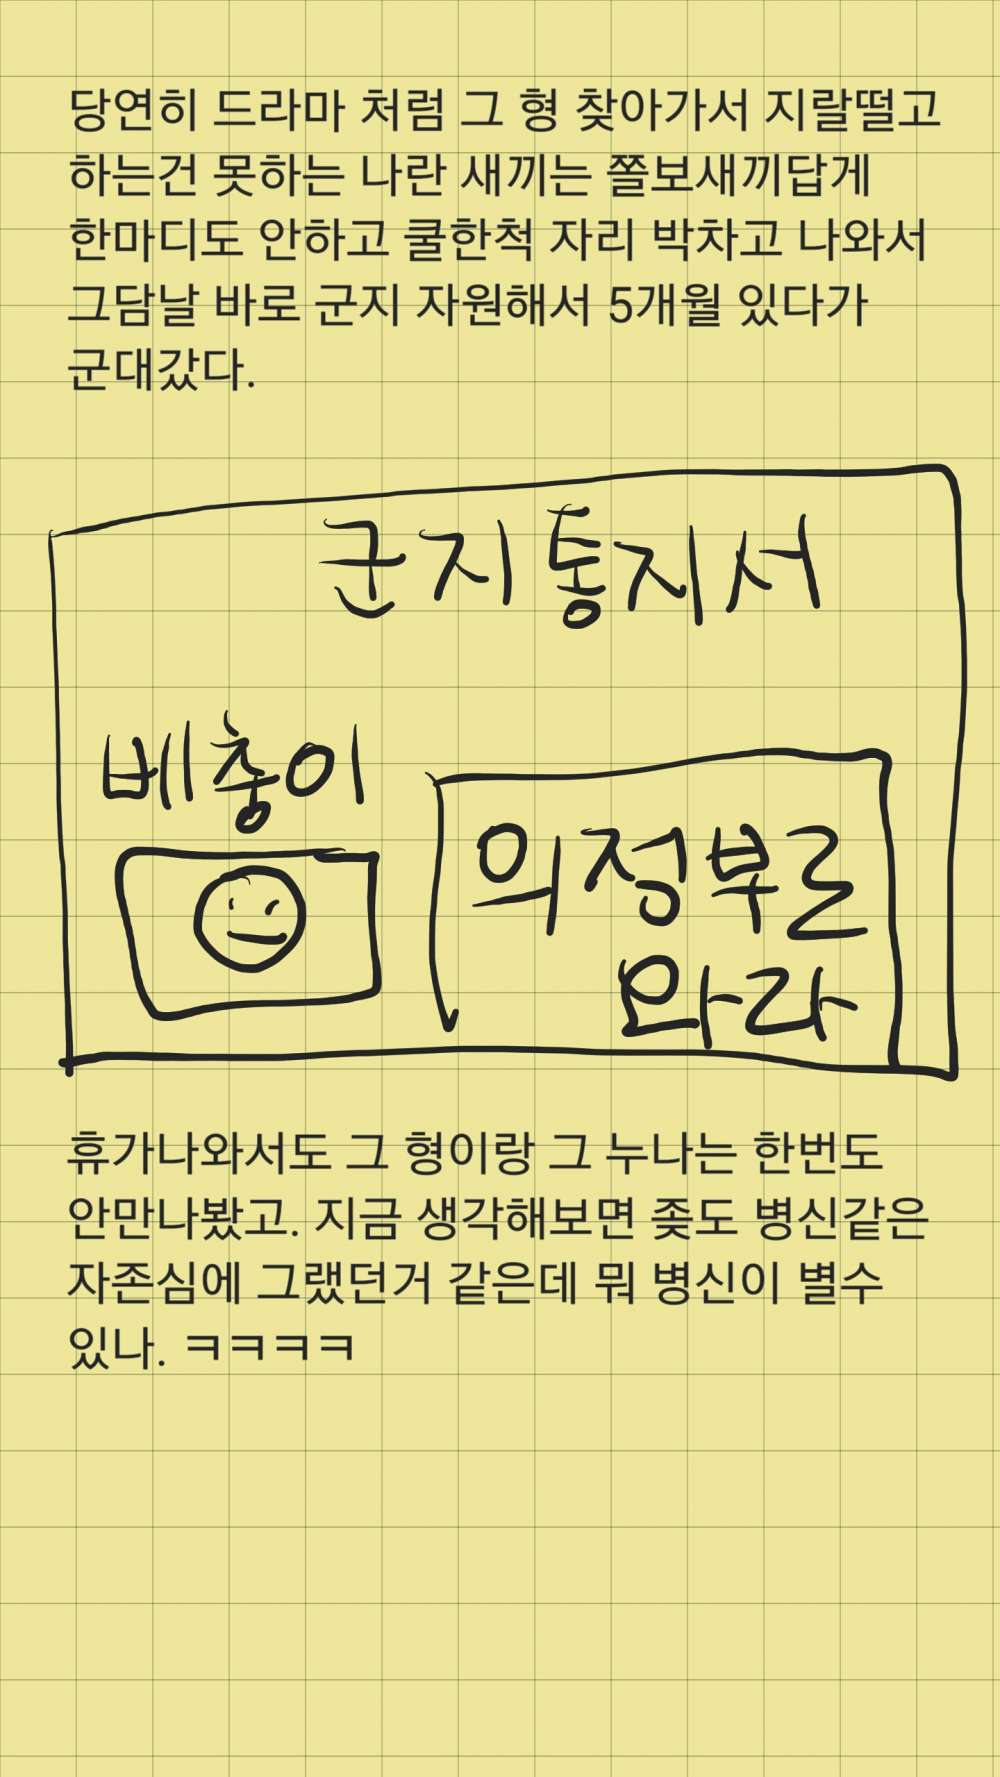 당연히 드라마 처럼 그 형 찾아가서 지랄떨고
하는건 못하는 나란 새끼는 쫄보새끼답게
한마디도 안하고 쿨한척 자리 박차고 나와서
그담날 바로 군지 자원해서 5개월 있다가
군대갔다.
군지통지서
베충이
의정부로
와라
휴가나와서도 그 형이랑 그 누나는 한번도
안만나봤고. 지금 생각해보면 좆도 병신같은
자존심에 그랬던거 같은데 뭐 병신이 별수
있나. ㅋㅋㅋㅋ